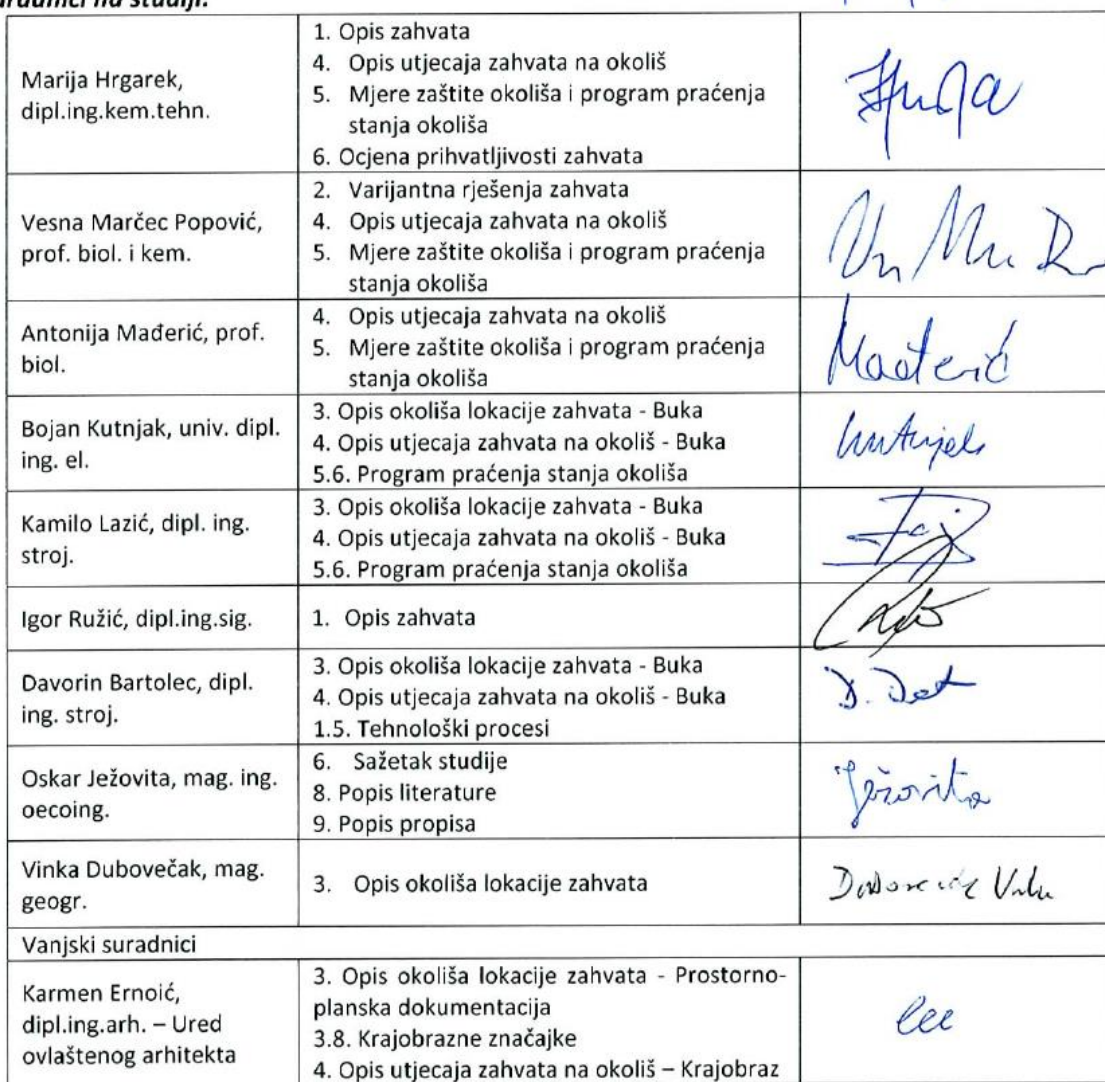 suradnici na studiji:
Marija Hrgarek,
dipl.ing.kem.tehn.
1. Opis zahvata
4. Opis utjecaja zahvata na okoliš
5. Mjere zaštite okoliša i program praćenja
stanja okoliša
6. Ocjena prihvatljivosti zahvata
Vesna Marčec Popović,
prof. biol. i kem.
2. Varijantna rješenja zahvata
4. Opis utjecaja zahvata na okoliš
5. Mjere zaštite okoliša i program praćenja
stanja okoliša
Antonija Mađerić, prof.
biol.
4. Opis utjecaja zahvata na okoliš
5. Mjere zaštite okoliša i program praćenja
stanja okoliša
Mađerić
Bojan Kutnjak, univ. dipl.
ing. el.
3. Opis okoliša lokacije zahvata - Buka
4. Opis utjecaja zahvata na okoliš - Buka
5.6. Program praćenja stanja okoliša
Kamilo Lazić, dipl. ing.
stroj.
3. Opis okoliša lokacije zahvata - Buka
4. Opis utjecaja zahvata na okoliš - Buka
5.6. Program praćenja stanja okoliša
Igor Ružić, dipl.ing.sig.
1. Opis zahvata
Davorin Bartolec, dipl.
ing. stroj.
3. Opis okoliša lokacije zahvata - Buka
4. Opis utjecaja zahvata na okoliš - Buka
1.5. Tehnološki procesi
Oskar Ježovita, mag. ing.
oecoing.
6. Sažetak studije
8. Popis literature
9. Popis propisa
Ježovita
Vinka Dubovečak, mag.
geogr.
3. Opis okoliša lokacije zahvata
Vanjski suradnici
Karmen Ernoić,
dipl.ing.arh. – Ured
ovlaštenog arhitekta
3. Opis okoliša lokacije zahvata - Prostorno-
planska dokumentacija
3.8. Krajobrazne značajke
4. Opis utjecaja zahvata na okoliš – Krajobraz